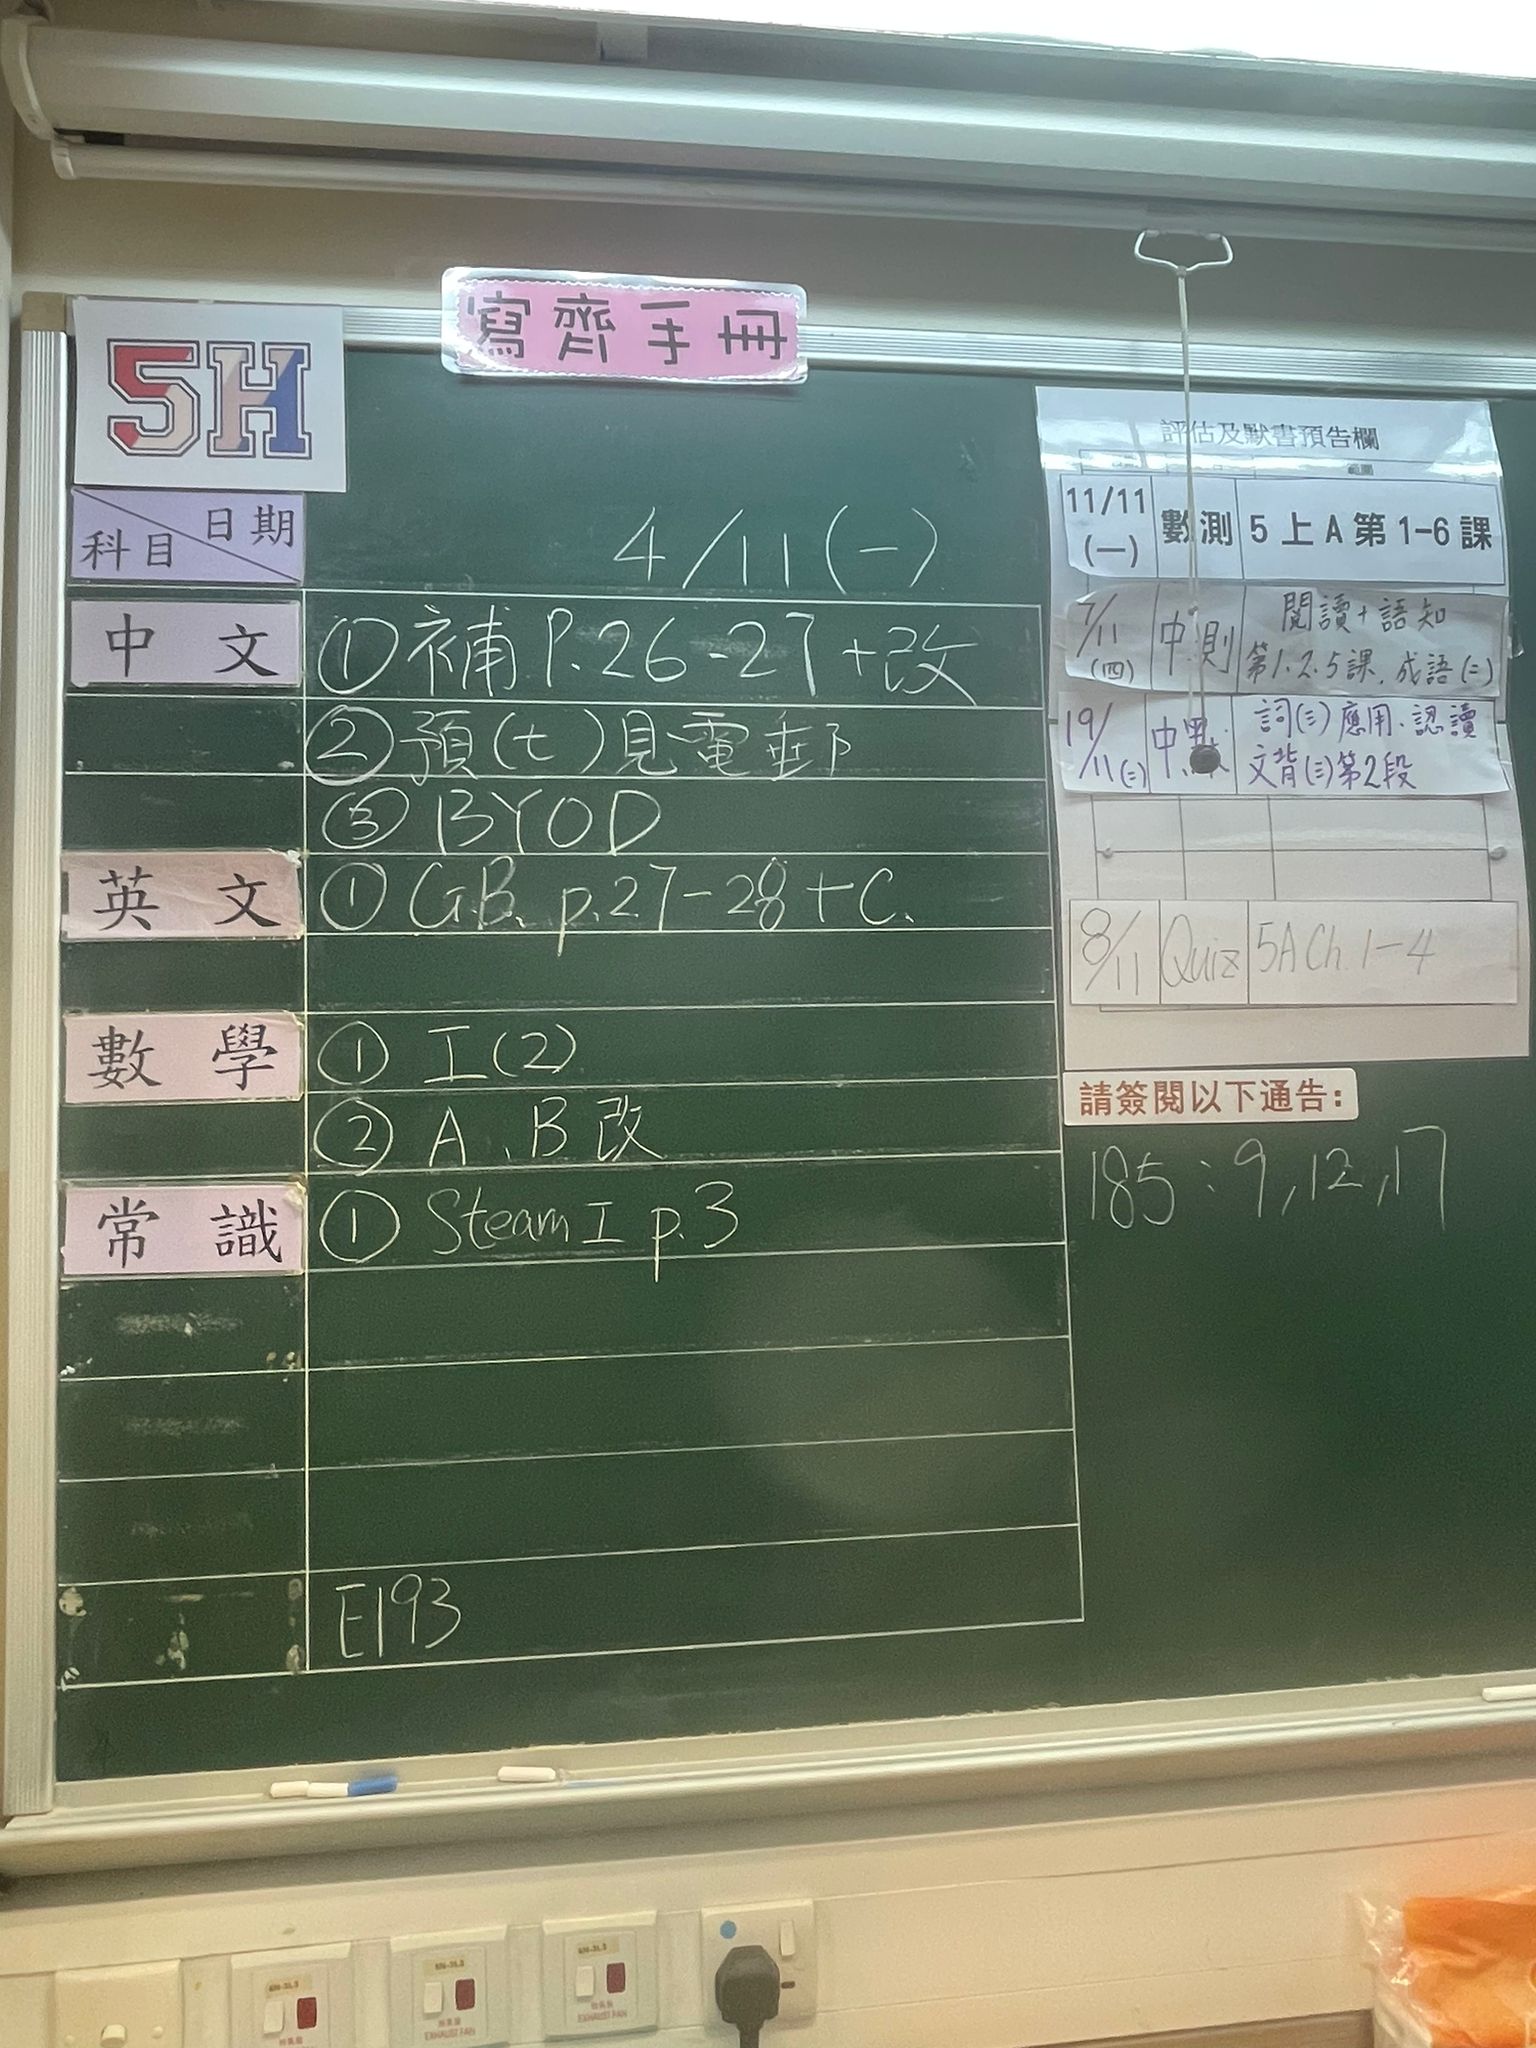 寫齊手冊
5H
日期
科目
4/11(一)
中文
①補P.26-27+改
②預(七)見電郵
③BYOD
英文
①G.B. p.27-28+C.
數學
①工(2)
②A、B改
常識
①Steam I p.3
E193
評估及默書預告欄
11/11 (一) 數測 5上A第1-6課
7/11 (四) 中測 閱讀+語知
第1.2.5課.成語(二)
19/11 (二) 中默 詞(三)應用.認讀
文背(三)第2段
8/11 Quiz 5A Ch.1-4
請簽閱以下通告:
185:9,12,17
EXHAUST FAN
EXHAUST FAN